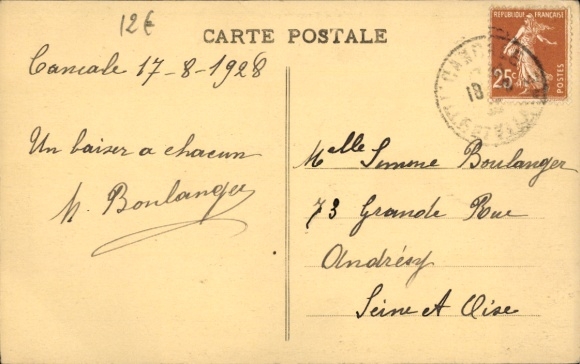 12€
CARTE POSTALE
REPUBLIQUE FRANÇAISE
25c
POSTES
CANCALE
18
Cancale 17-8-1928
Un baiser a chacun
M. Boulanger
Melle Simone Boulanger
73 Grande Rue
Andrésy
Seine et Oise